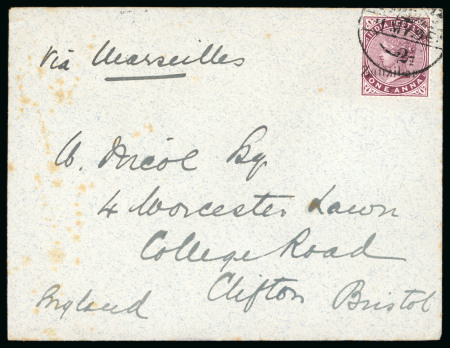 Via Marseilles
INDIA
ONE ANNA
W. Nicol Esq
4 Worcester Lawn
College Road
Clifton Bristol
England